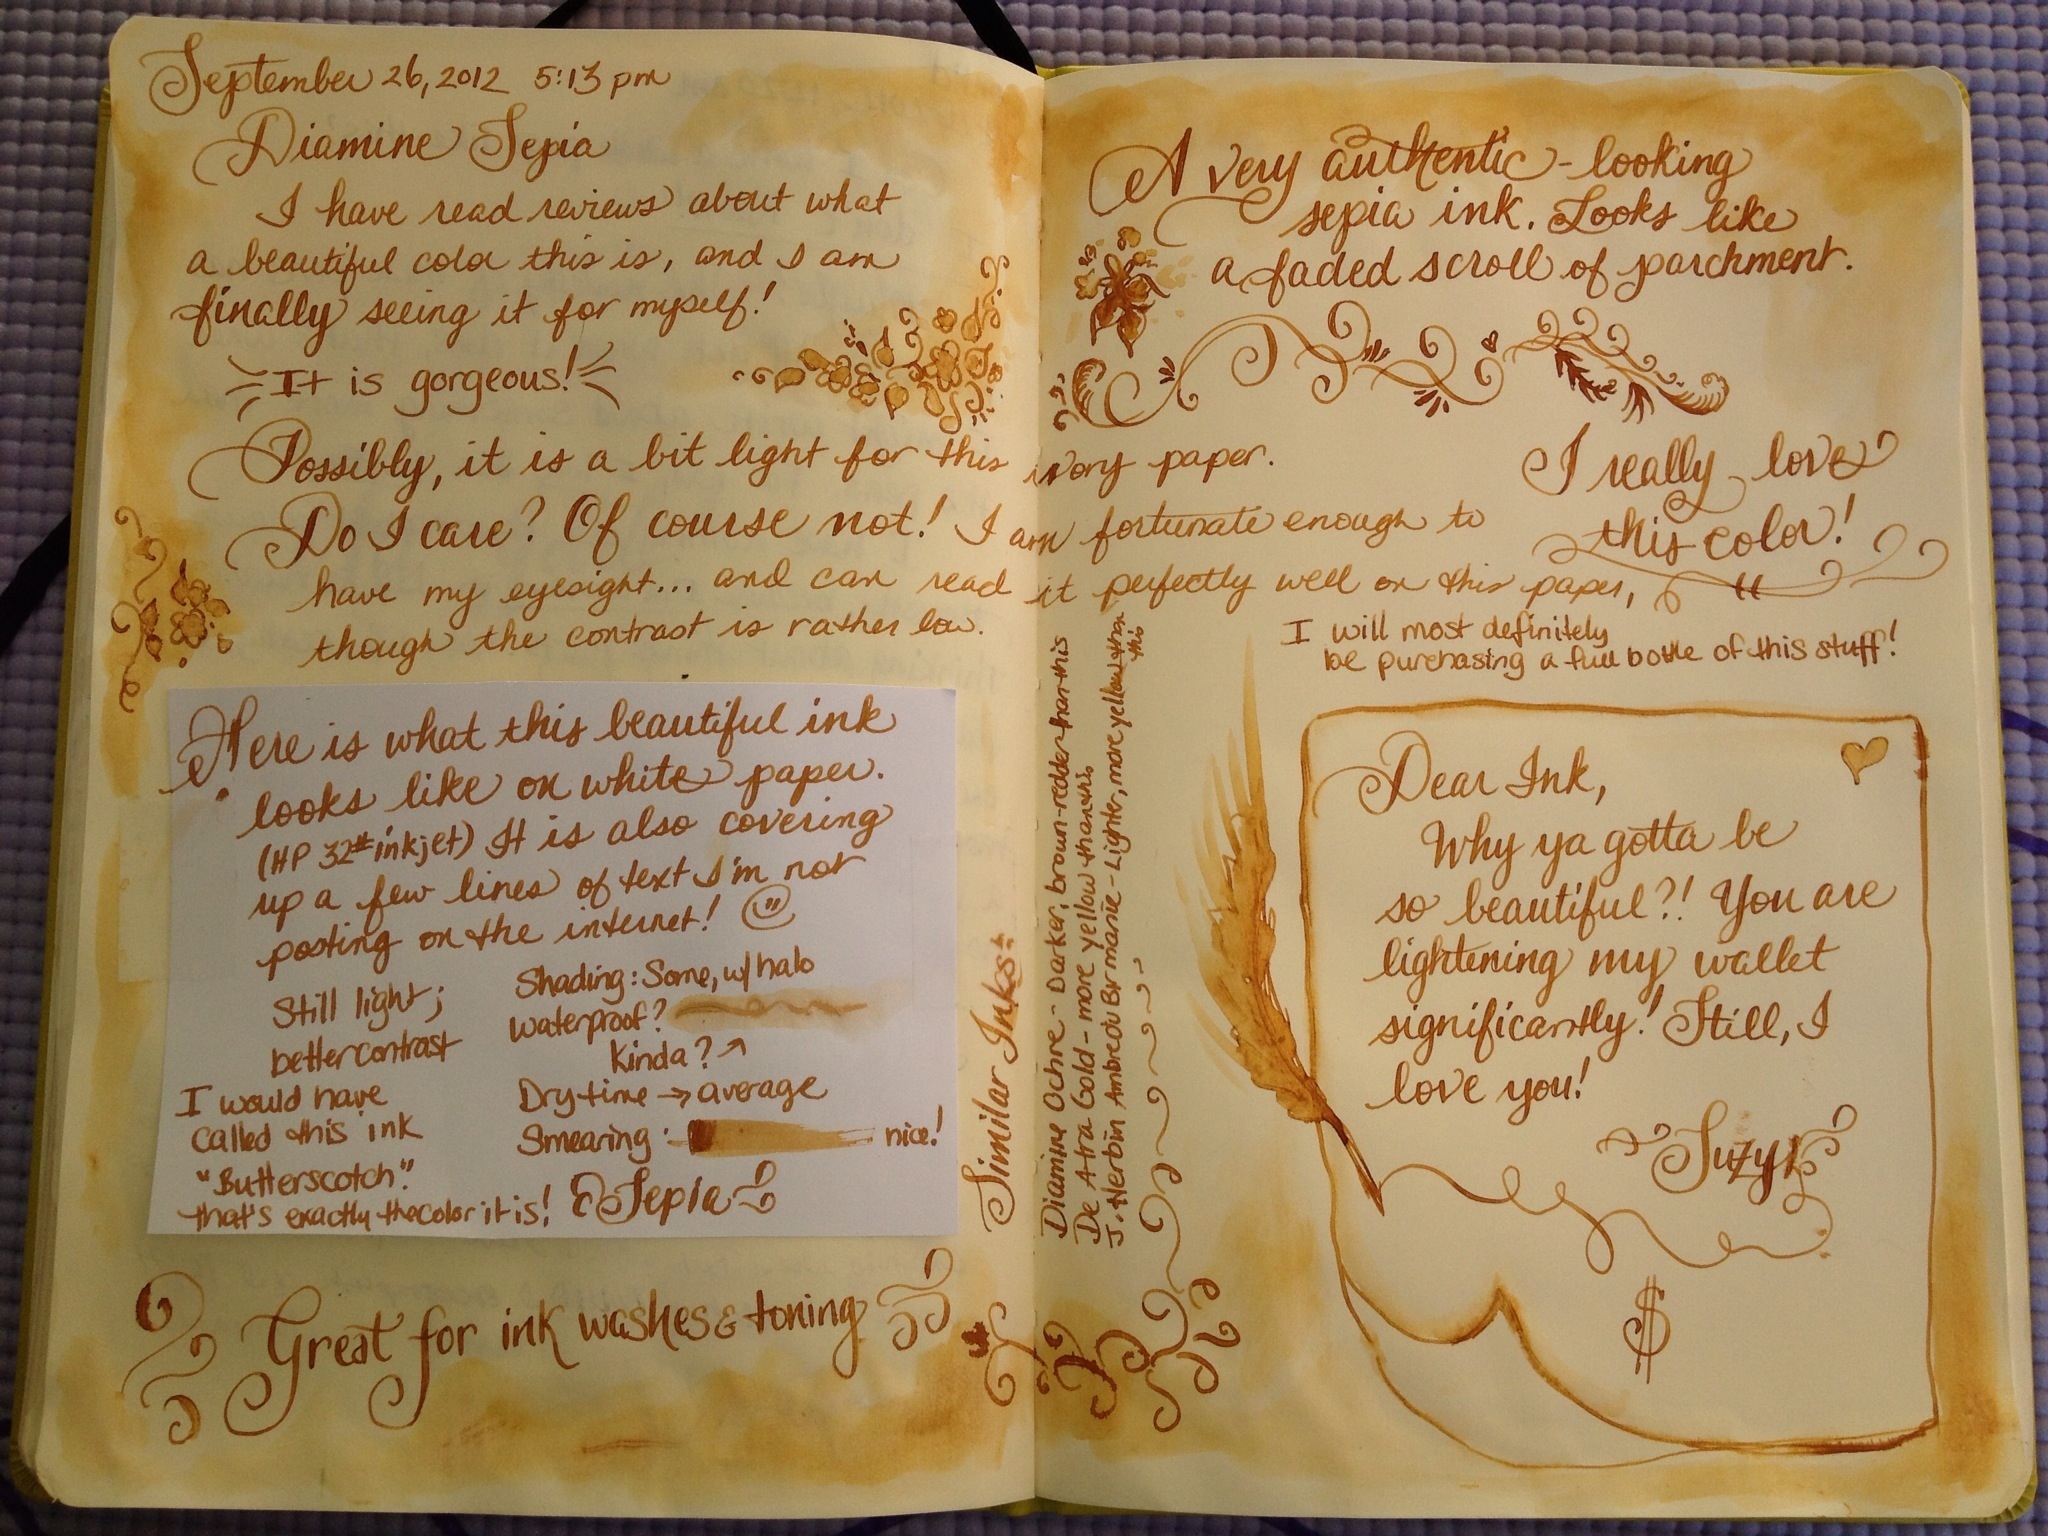 September 26, 2012 5:13 pm
Diamine Sepia
I have read reviews about what
a beautiful color this is, and I am
finally seeing it for myself!
It is gorgeous!
Possibly, it is a bit light for this ivory paper.
Do I care? Of course not! I am fortunate enough to
have my eyesight... and can read it perfectly well on this paper,
though the contrast is rather low.
Here is what this beautiful ink
looks like on white paper.
(HP 32# inkjet) It is also covering
up a few lines of text I'm not
posting on the internet!
Still light;
better contrast
I would have
called this ink
"Butterscotch".
that's exactly the color it is!
Shading: Some, w/ halo
Waterproof?
Kinda?
Dry time → average
Smearing: nice!
Sepia
Great for ink washes & toning
Similar Inks:
Diamine Ochre - Darker, brown-redder than this
De Atra Gold - more yellow than this
J. Herbin Ambre du Birmanie - Lighter, more yellow than
this
A very authentic-looking
sepia ink. Looks like
a faded scroll of parchment.
I really love
this color!
I will most definitely
be purchasing a full bottle of this stuff!
Dear Ink,
Why ya gotta be
so beautiful?! You are
lightening my wallet
significantly! Still, I
love you!
Suzy
$